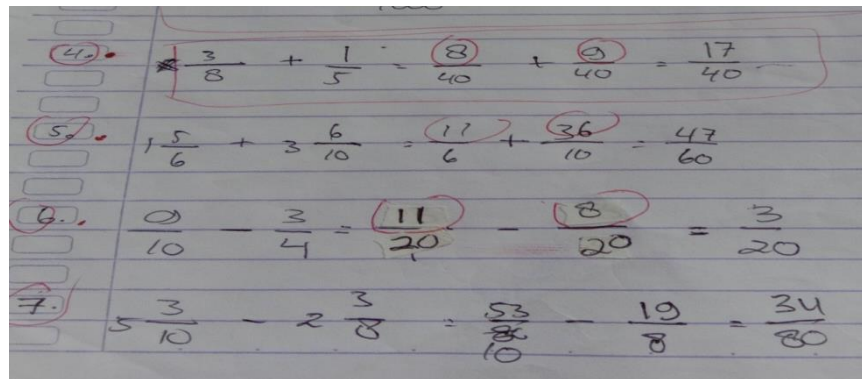 4. 3/8 + 1/5 = 8/40 + 9/40 = 17/40
5. 1 5/6 + 3 6/10 = 11/6 + 36/10 = 47/60
6. 9/10 - 3/4 = 11/20 - 8/20 = 3/20
7. 5 3/10 - 2 3/8 = 53/10 - 19/8 = 34/80